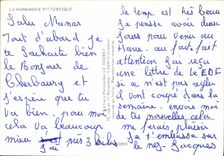 LA NORMANDIE PITTORESQUE
Salu Muna
Tout d'abord je
te souhaite bien
le Bonjour de
Cherbourg et
J'espère que tu
va bien. pour moi
cela va beaucoup
mieux J'ai pris 3 kilos
le temp est très beau
Je pense avoir des
Jours pour venir au
mais fait
attention J'ai reçu
une lettre de l'EDF
si ce n'est pas réglé
ils vont coupé dans la
semaine. envoie moi
de tes nouvelles cela
me ferais plaisir
Je t'embrasse sur
le nez. Jacques